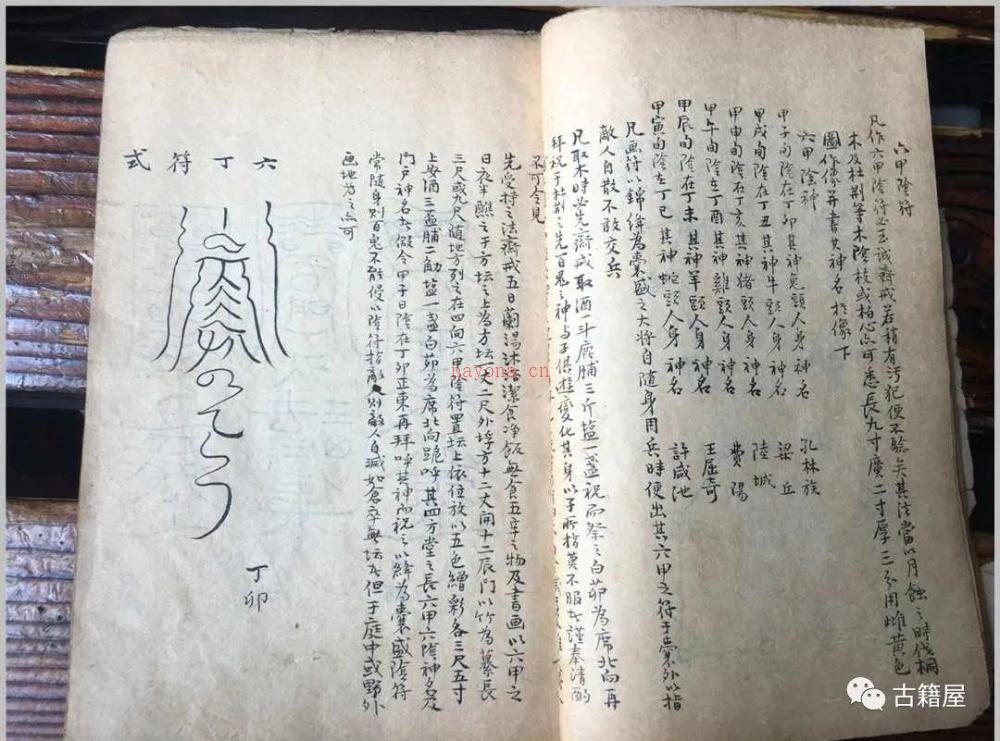 六甲陰符
凡作六甲陰符至誠齋戒若稍有污犯便不驗矣其法當以月蝕之時伐桐
木及杜荆等木陰枝或柏心亦可悉長九寸廣二寸厚三分用雌黄色
圖作像并書其神名扵像下
六甲陰神
甲子旬陰在丁卯其神兔頭人身神名 孔林族
甲戌旬陰在丁丑其神牛頭人身神名 梁丘
甲申旬陰在丁亥其神猪頭人身神名 陸城
甲午旬陰在丁酉其神雞頭人身神名 費陽
甲辰旬陰在丁未其神羊頭人身神名 王屈奇
甲寅旬陰在丁巳其神蛇頭人身神名 許咸池
凡画符以錦絳為囊盛之大將自随身用兵時便出其六甲之符于囊外以指
敵人自散不敢交兵
凡取木時必先齋戒取酒一斗鹿脯三斤塩一盞祝而祭之白茆為席北向再
拜祝于杜荆之先百鬼之神与子俱遊變化其身以子所指莫不服者謹奉清酌
不可令見
先受持之法齋戒五日蘭湯沐浴潔食净飯無食五辛之物及書画以六甲之
日夜半醮之于方坛之上為方坛一丈二尺外埒方十二丈開十二辰門以竹為纂長
三尺或九尺随地方列之在四向六甲陰符置坛上依位放以五色繒彩各三尺五寸
上安酒三盃脯一觔塩一盞白茆為席北向跪呼其四方堂之長六甲六陰神名及
門户神名出假令甲子日陰在丁卯正東再拜呼其神而祝之以絳為囊盛陰符
常随身別百鬼不能侵以陰符指敵人則敵人自滅如倉卒無坛者但于庭中或野外
画地為之亦可
六丁符式
丁卯
nayona.cn
古籍屋